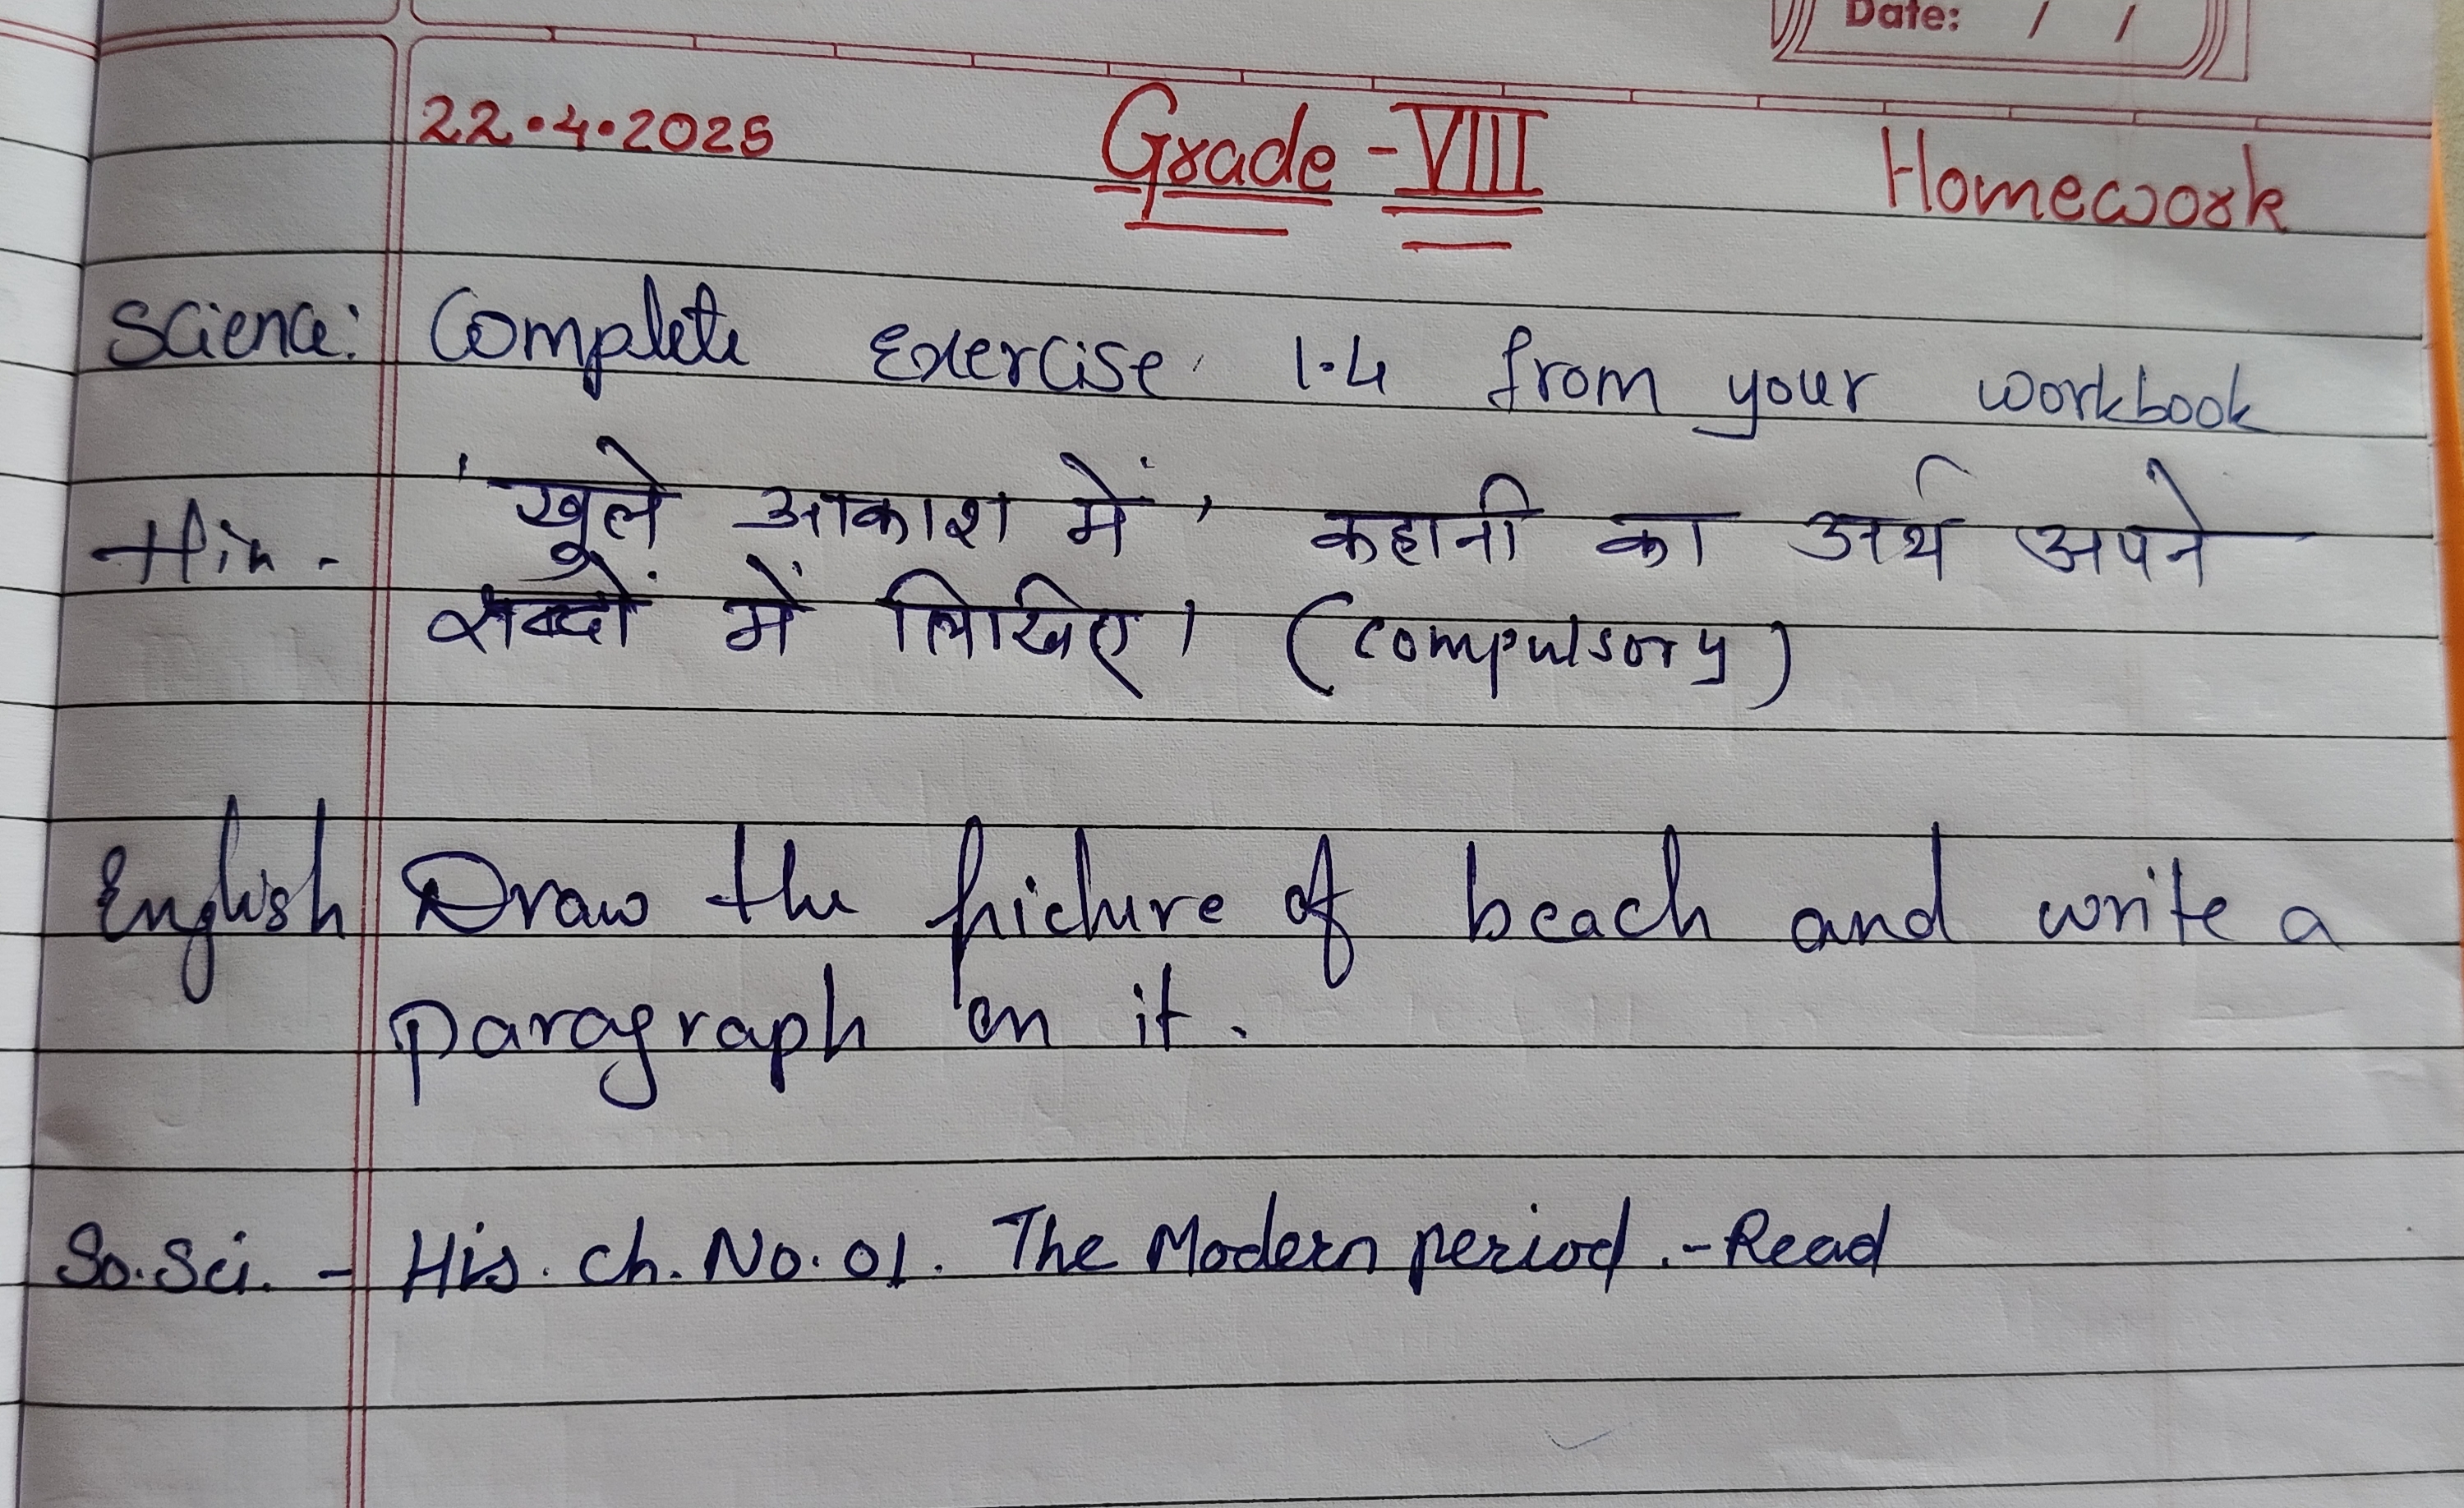 Date: / /
22.4.2025 Grade - VIII Homework
Science: Complete Exercise 1.4 from your workbook
Hin. 'खुले आकाश में' कहानी का अर्थ अपने
शब्दों में लिखिए। (compulsory)
English Draw the picture of beach and write a
paragraph on it.
So.Sci. - His. ch. No. 01. The Modern period. - Read